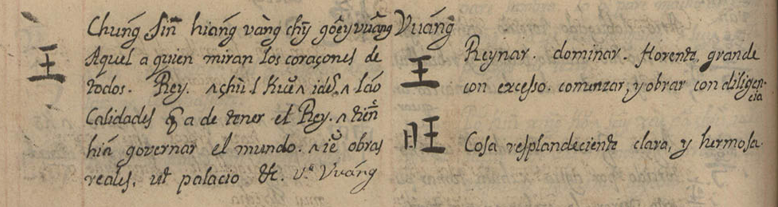 Chung sin hiáng vàng chȳ góéy vuâng
王 Aquel a quien miran los coraçones de
todos. Rey.
Calidades q̃ a de tener el Rey.
hiá governar el mundo. obras
reales. ut palacio &c. vᵉ Vuáng
Vuáng
王 Reynar. dominar. florente, grande
con excesso. comenzar, y obrar con diligen-
cia
旺 Cosa resplandeciente clara, y hermosa.